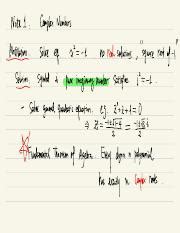 Note 1 : Complex Numbers
Motivation. Solve eq. x² = -1 no real solution, "square root of -1"
Solution. Symbol i pure imaginary number satisfies i² = -1.
- Solve general quadratic equation. e.g. z²+z+1=0
⇒ z = (-1±√-3)/2 = (-1±√3 i)/2
Fundamental Theorem of Algebra. Every degree n polynomial,
has exactly n complex roots.